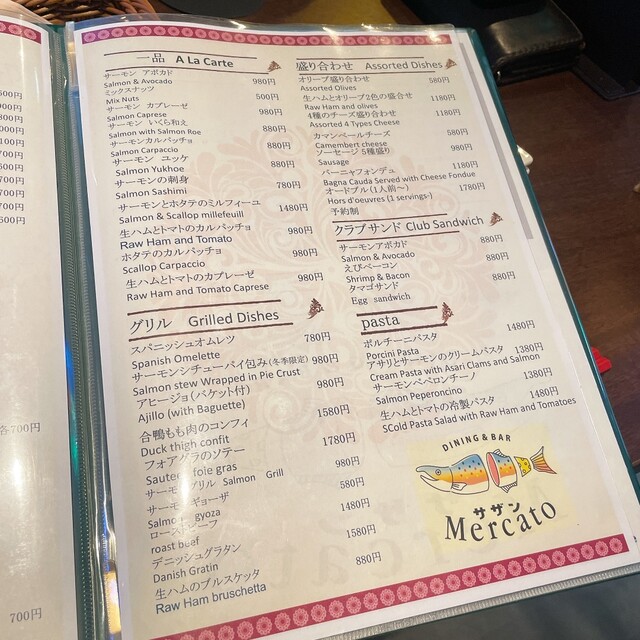 500円
900円
800円
000円
100円
700円
500円
700円
700円
600円
各700円
700円
一品 A La Carte
サーモン アボカド
Salmon & Avocado 980円
ミックスナッツ
Mix Nuts 500円
サーモン カプレーゼ
Salmon Caprese 980円
サーモン いくら和え
Salmon with Salmon Roe 880円
サーモンカルパッチョ
Salmon Carpaccio 880円
サーモン ユッケ
Salmon Yukhoe 880円
サーモンの刺身
Salmon Sashimi 780円
サーモンとホタテのミルフィーユ
Salmon & Scallop millefeuill 1480円
生ハムとトマトのカルパッチョ
Raw Ham and Tomato 980円
ホタテのカルパッチョ
Scallop Carpaccio 980円
生ハムとトマトのカプレーゼ
Raw Ham and Tomato Caprese 980円
グリル Grilled Dishes
スパニッシュオムレツ 780円
Spanish Omelette
サーモンシチューパイ包み(冬季限定) 980円
Salmon stew Wrapped in Pie Crust
アヒージョ(バケット付) 980円
Ajillo (with Baguette)
合鴨もも肉のコンフィ 1580円
Duck thigh confit
フォアグラのソテー 1780円
Sauteed foie gras
サーモングリル Salmon Grill 980円
サーモンギョーザ 580円
Salmon gyoza
ローストビーフ 1480円
roast beef
デニッシュグラタン 1580円
Danish Gratin
生ハムのブルスケッタ 880円
Raw Ham bruschetta
盛り合わせ Assorted Dishes
オリーブ盛り合わせ 580円
Assorted Olives
生ハムとオリーブ2色の盛合せ 1180円
Raw Ham and olives
4種のチーズ盛り合わせ 1180円
Assorted 4 Types Cheese
カマンベールチーズ 580円
Camembert cheese
ソーセージ5種盛り 980円
Sausage
バーニャフォンデュ 1180円
Bagna Cauda Served with Cheese Fondue
オードブル(1人前〜) 1780円
Hors d'oeuvres (1 servings-)
予約制
クラブサンド Club Sandwich
サーモンアボカド 880円
Salmon & Avocado
えびベーコン 880円
Shrimp & Bacon
タマゴサンド 880円
Egg sandwich
pasta
ポルチーニパスタ 1480円
Porcini Pasta
アサリとサーモンのクリームパスタ 1380円
Cream Pasta with Asari Clams and Salmon
サーモンペペロンチーノ 1380円
Salmon Peperoncino
生ハムとトマトの冷製パスタ 1480円
SCold Pasta Salad with Raw Ham and Tomatoes
DINING & BAR
サザン
Mercato